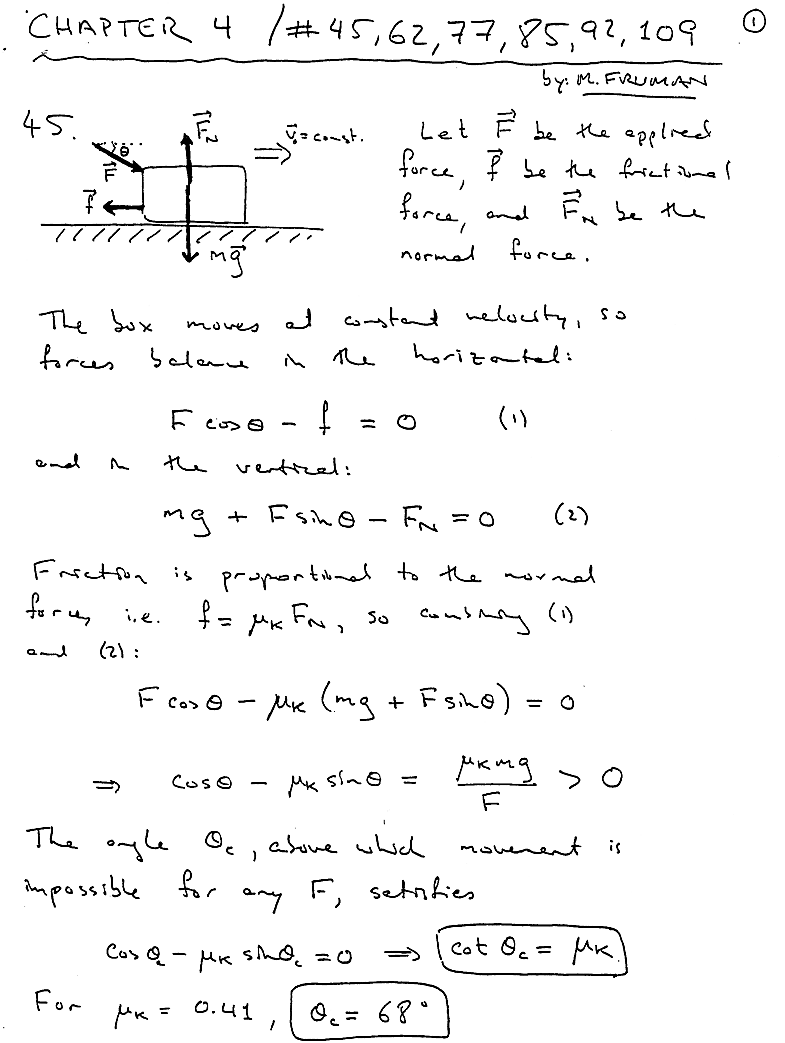 CHAPTER 4 / # 45, 62, 77, 85, 92, 109 ①
by: M. FRUMAN
45.
θ
F⃗
f⃗
F⃗_N
mg⃗
⇒ v⃗₀ = const.
Let F⃗ be the applied
force, f⃗ be the frictional
force, and F⃗_N be the
normal force.
The box moves at constant velocity, so
forces balance in the horizontal:
F cosθ - f = 0 (1)
and in the vertical:
mg + F sinθ - F_N = 0 (2)
Friction is proportional to the normal
force, i.e. f = μ_K F_N, so combining (1)
and (2):
F cosθ - μ_K (mg + F sinθ) = 0
⇒ cosθ - μ_K sinθ = μ_K mg / F > 0
The angle θ_c, above which movement is
impossible for any F, satisfies
cosθ_c - μ_K sinθ_c = 0 ⇒ cot θ_c = μ_K
For μ_K = 0.41, θ_c = 68°